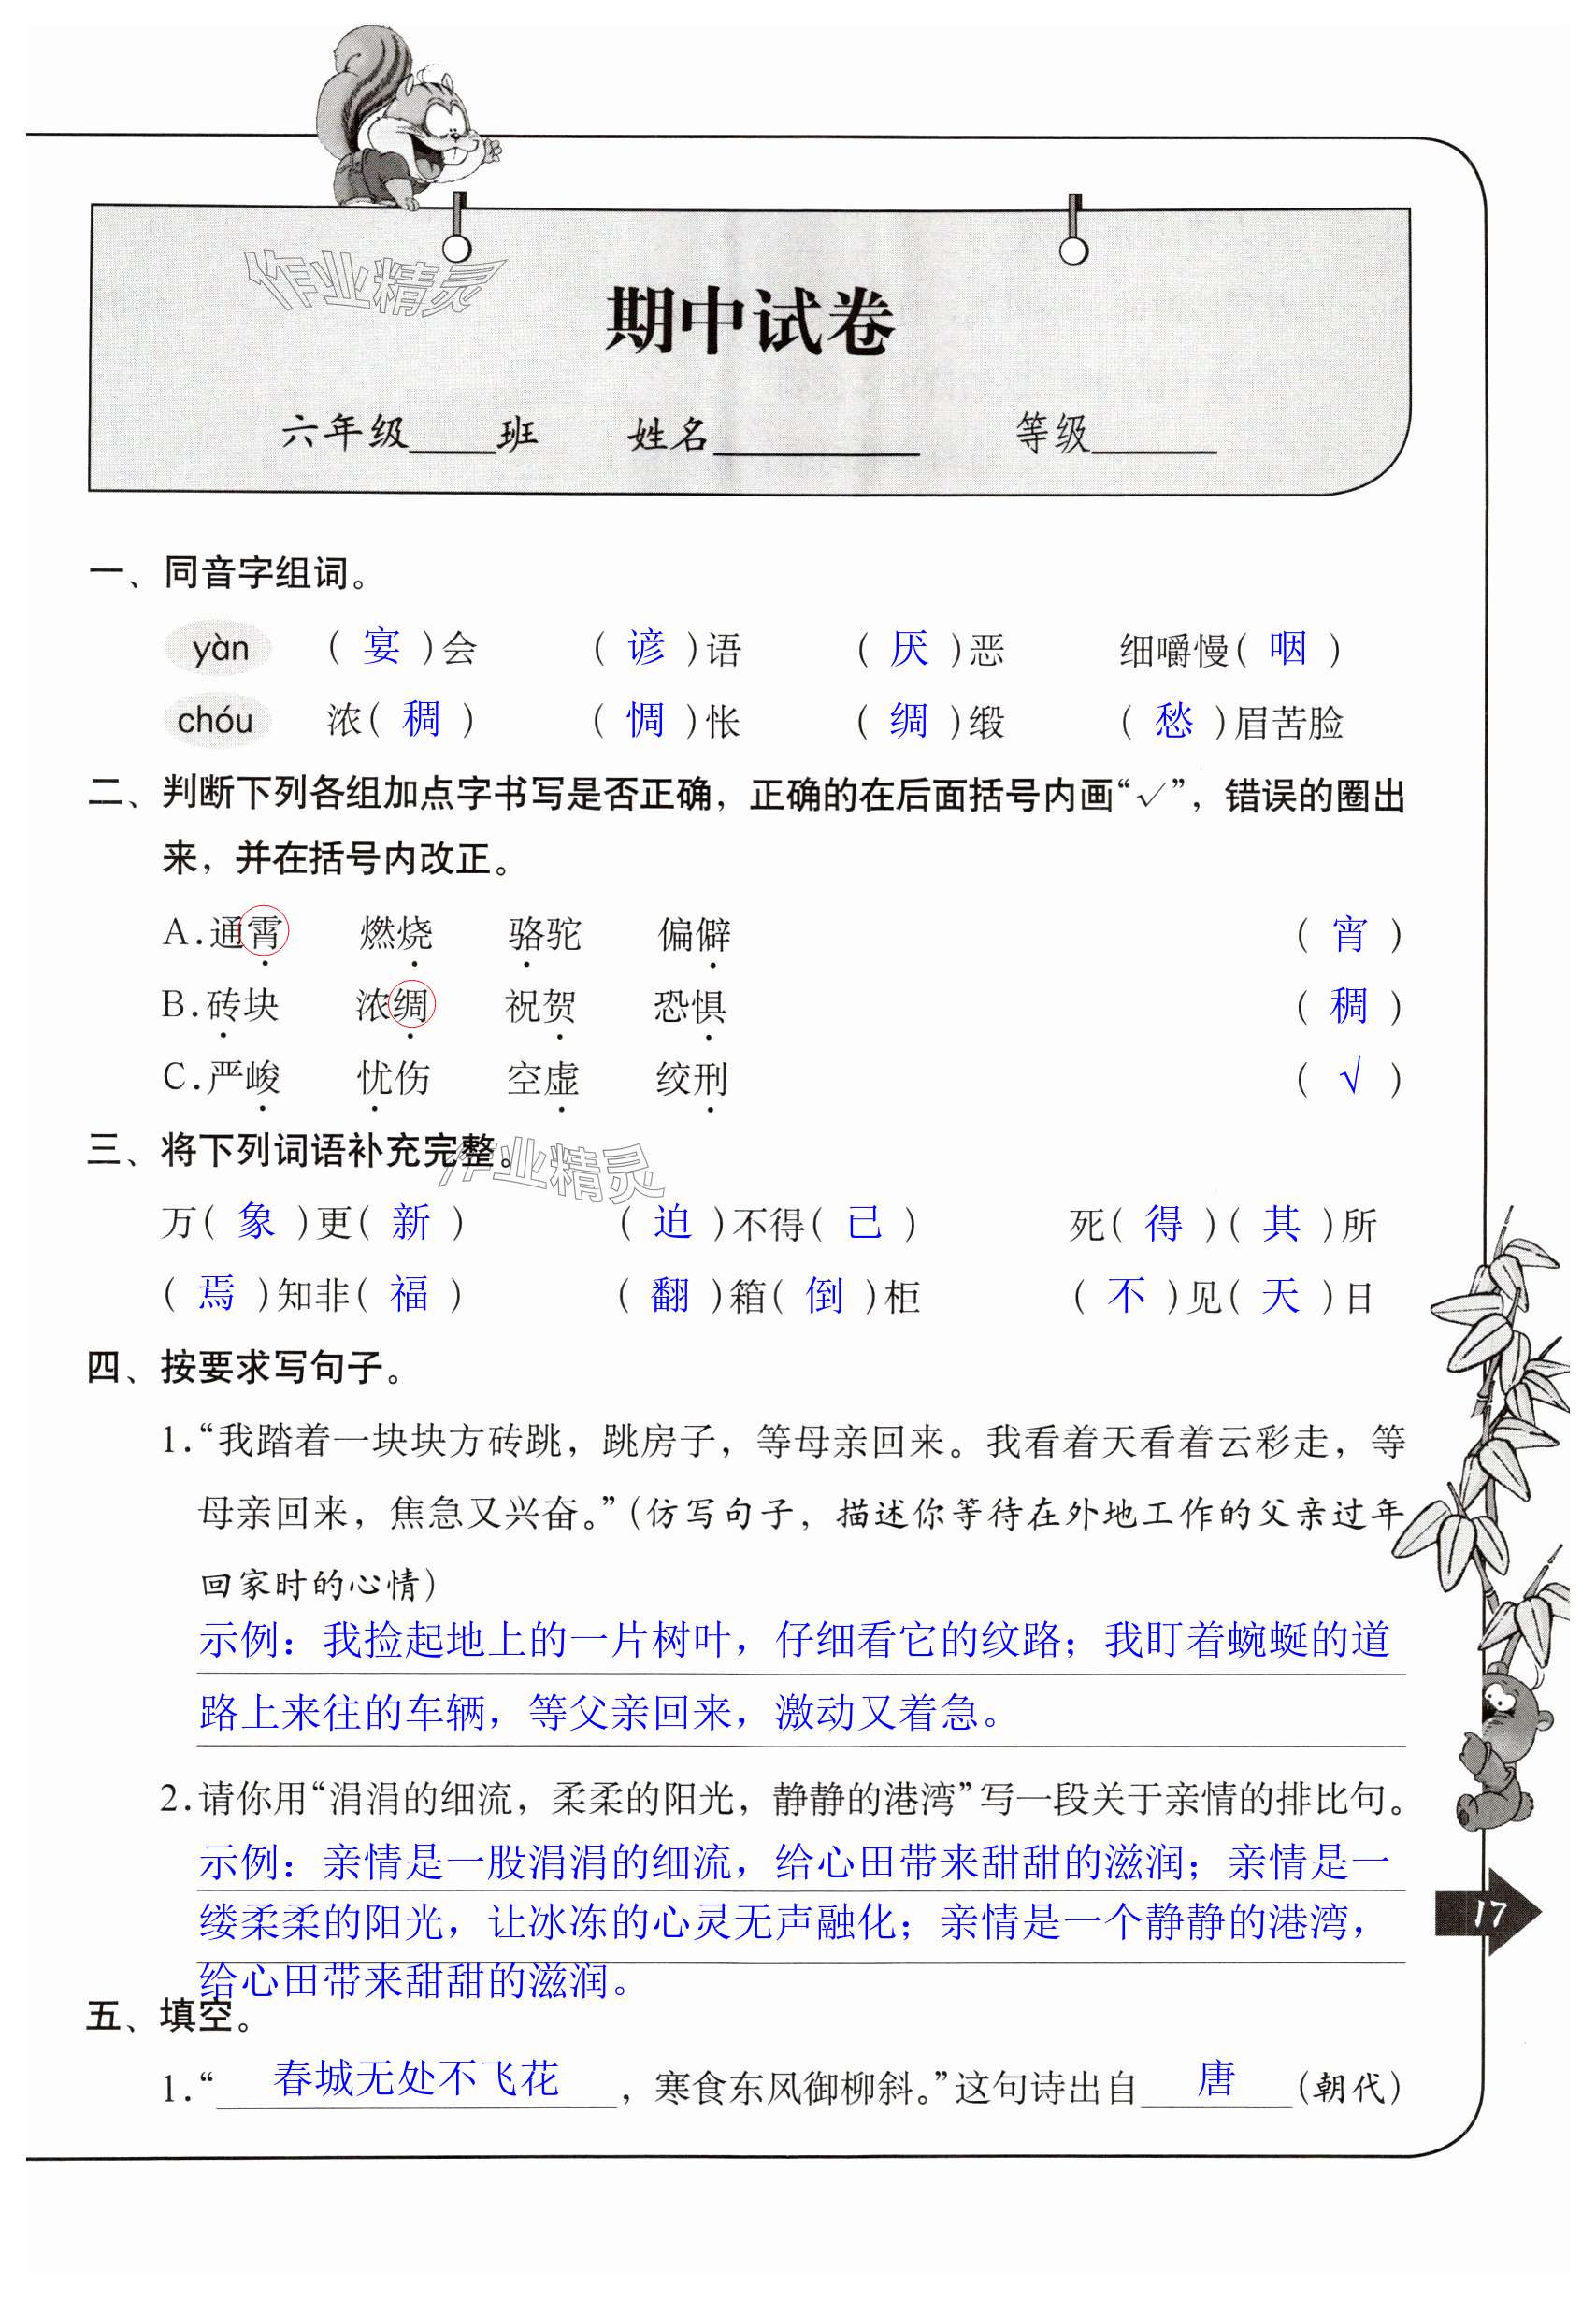 作业精灵
期中试卷
六年级____班 姓名________ 等级_____
一、同音字组词。
yàn ( 宴 )会 ( 谚 )语 ( 厌 )恶 细嚼慢( 咽 )
chóu 浓( 稠 ) ( 惆 )怅 ( 绸 )缎 ( 愁 )眉苦脸
二、判断下列各组加点字书写是否正确，正确的在后面括号内画“√”，错误的圈出
来，并在括号内改正。
A.通霄 燃烧 骆驼 偏僻 ( 宵 )
B.砖块 浓绸 祝贺 恐惧 ( 稠 )
C.严峻 忧伤 空虚 绞刑 ( √ )
三、将下列词语补充完整。
作业精灵
万( 象 )更( 新 ) ( 迫 )不得( 已 ) 死( 得 )( 其 )所
( 焉 )知非( 福 ) ( 翻 )箱( 倒 )柜 ( 不 )见( 天 )日
四、按要求写句子。
1.“我踏着一块块方砖跳，跳房子，等母亲回来。我看着天看着云彩走，等
母亲回来，焦急又兴奋。”(仿写句子，描述你等待在外地工作的父亲过年
回家时的心情)
示例：我捡起地上的一片树叶，仔细看它的纹路；我盯着蜿蜒的道
路上来往的车辆，等父亲回来，激动又着急。
2.请你用“涓涓的细流，柔柔的阳光，静静的港湾”写一段关于亲情的排比句。
示例：亲情是一股涓涓的细流，给心田带来甜甜的滋润；亲情是一
缕柔柔的阳光，让冰冻的心灵无声融化；亲情是一个静静的港湾，
给心田带来甜甜的滋润。
17
五、填空。
1.“春城无处不飞花，寒食东风御柳斜。”这句诗出自 唐 (朝代)